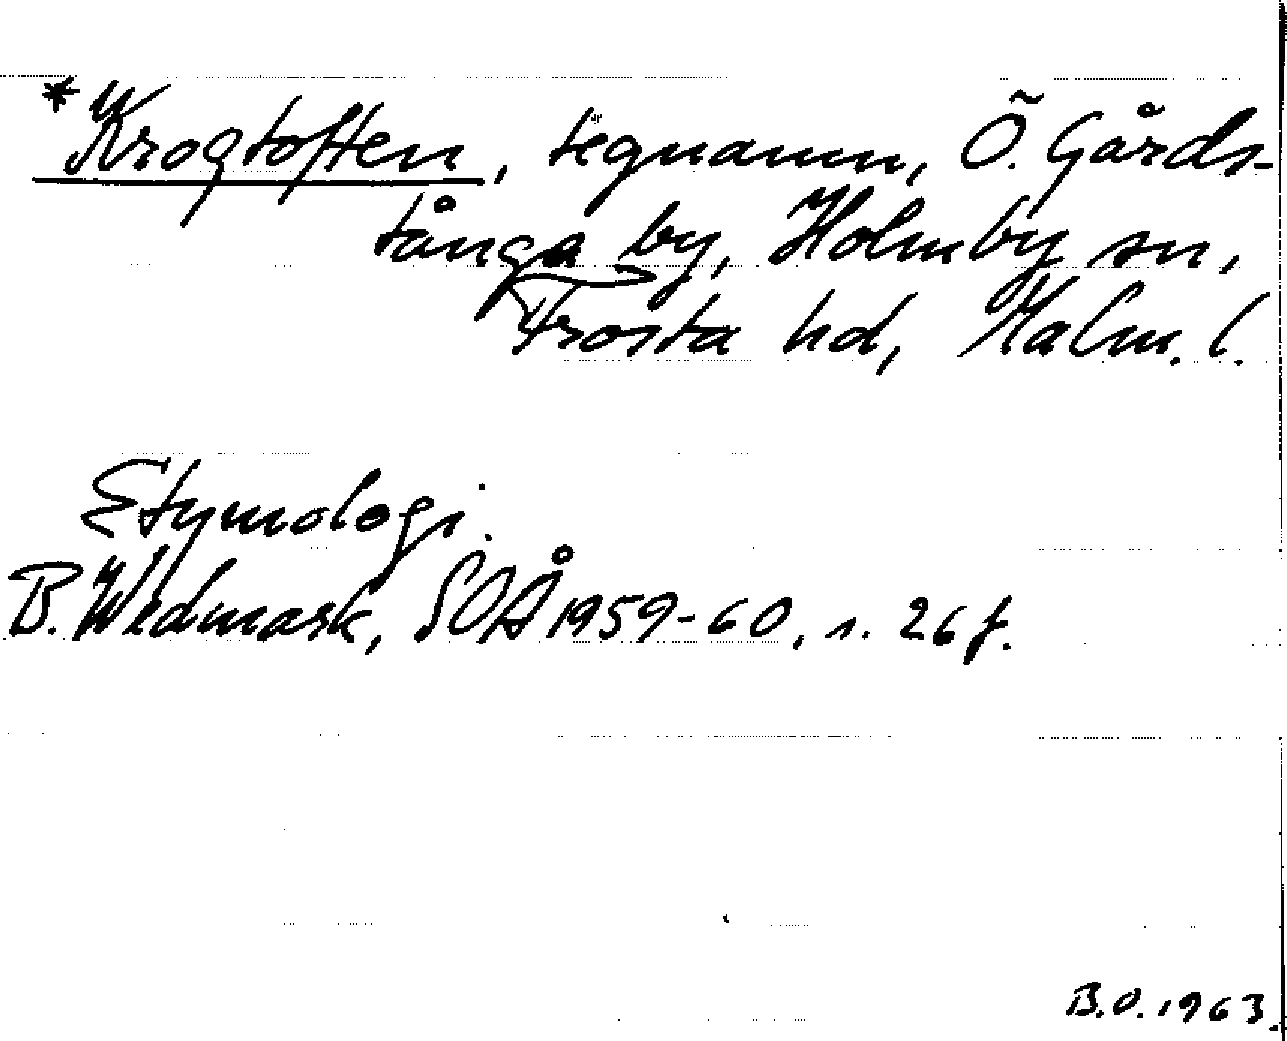 *Krogtoften, tegnamn, Ö. Gårds-
tånga by, Holmby sn,
Frosta hd, Malm. l.
Etymologi.
B. Wedmark, SOÅ 1959-60, s. 26 f.
B.O. 1963.